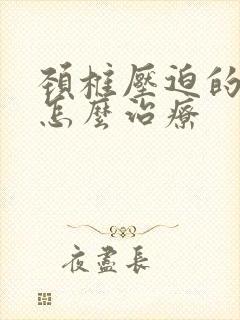 頚椎壓迫的
怎麼治療
夜盡長